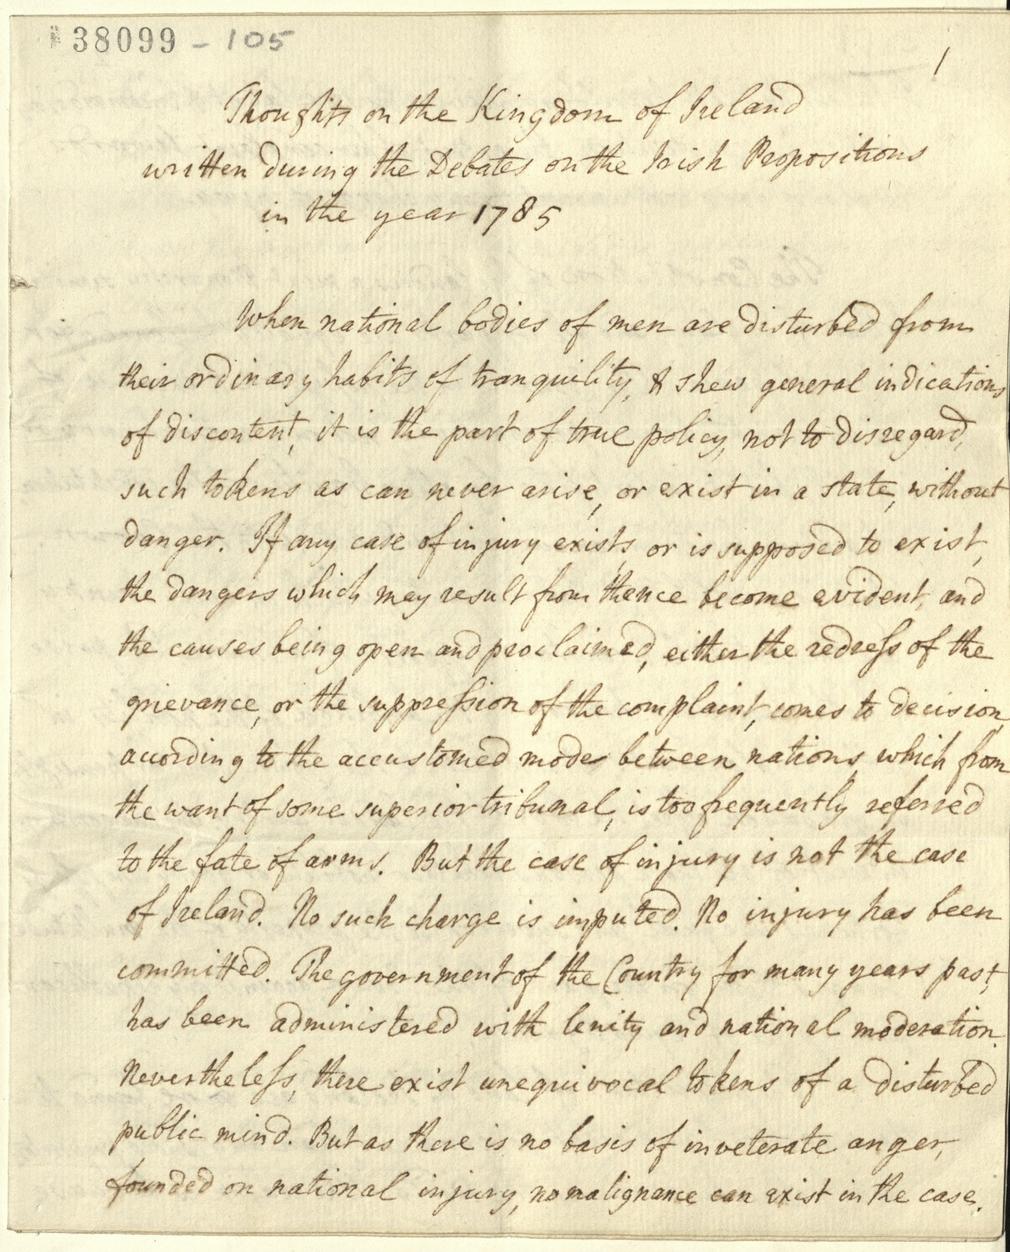 38099 - 105
1
Thoughts on the Kingdom of Ireland
written during the Debates on the Irish Propositions
in the year 1785
When national bodies of men are disturbed from
their ordinary habits of tranquility, & shew general indications
of discontent, it is the part of true policy, not to disregard,
such tokens as can never arise, or exist in a state, without
danger. If any case of injury exists, or is supposed to exist,
the dangers which may result from thence become evident, and
the causes being open and proclaimed, either the redreſs of the
grievance, or the suppreſsion of the complaint, comes to decision,
according to the accustomed modes between nations, which from
the want of some superior tribunal, is too frequently referred
to the fate of arms. But the case of injury is not the case
of Ireland. No such charge is imputed. No injury has been
committed. The government of the Country for many years past,
has been administered with lenity and national moderation.
Nevertheleſs, there exist unequivocal tokens of a disturbed
public mind. But as there is no basis of inveterate anger,
founded on national injury, no malignance can exist in the case.